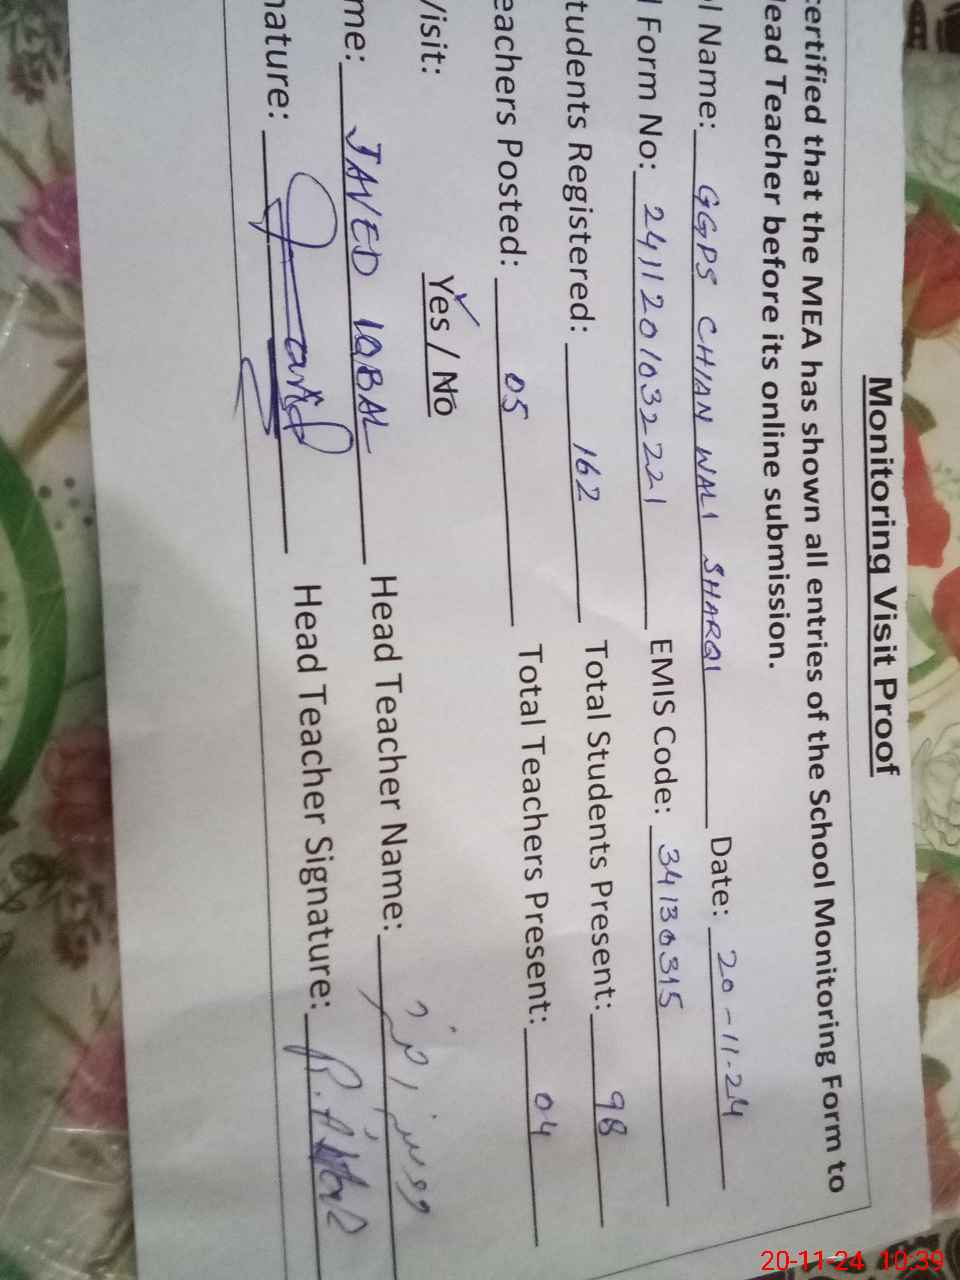 Monitoring Visit Proof
certified that the MEA has shown all entries of the School Monitoring Form to
Head Teacher before its online submission.
ol Name: GGPS CHIAN WALI SHARQI Date: 20-11-24
l Form No: 241120103221 EMIS Code: 34130315
tudents Registered: 162 Total Students Present: 98
eachers Posted: 05 Total Teachers Present: 04
Visit: Yes / No
me: JAVED IQBAL Head Teacher Name:
nature: Javed Head Teacher Signature:
20-11-24 10:39